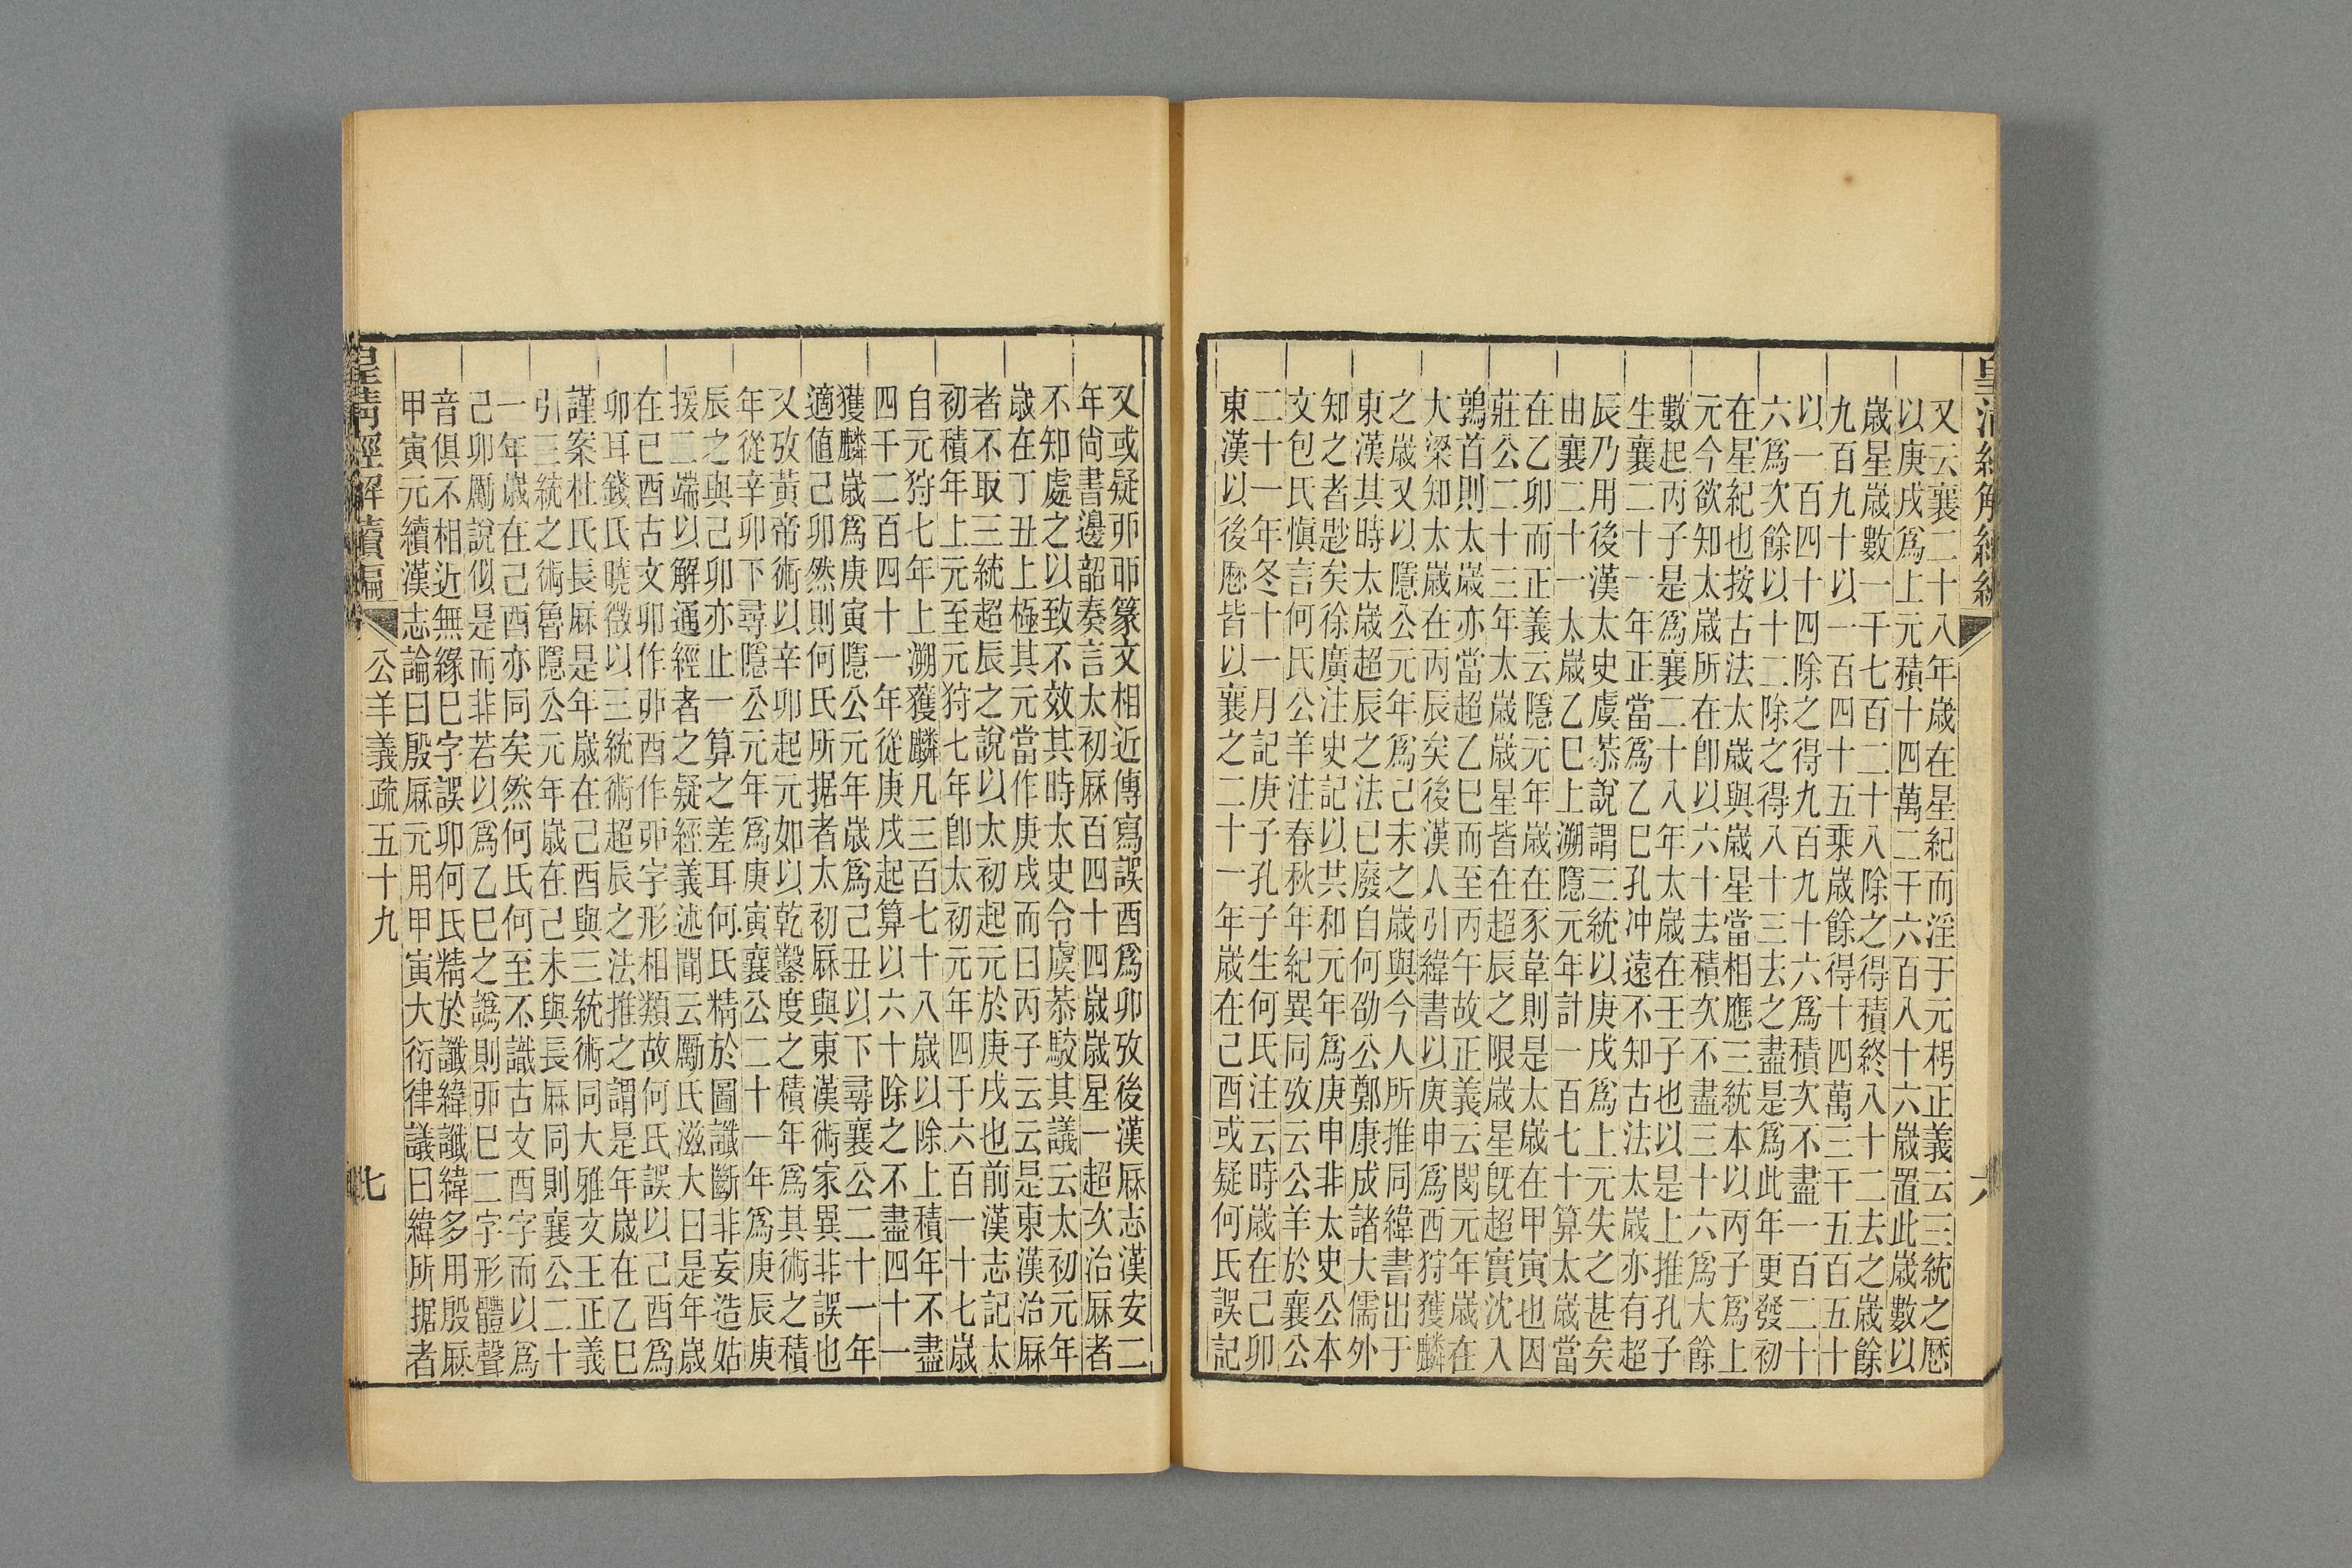 皇清經解續編
又云襄二十八年歲在星紀而淫于元枵正義云三統之厯
以庚戌爲上元積十四萬二千六百八十六歲置此歲數以
歲星歲數一千七百二十八除之得積終八十二去之歲餘
九百九十以一百四十五乘歲餘得十四萬三千五百五十
以一百四十四除之得九百九十六爲積次不盡一百二十
六爲次餘以十二除之得八十三去之盡是爲此年更發初
在星紀也按古法太歲與歲星當相應三統本以丙子爲上
元今欲知太歲所在卽以六十去積次不盡三十六爲大餘
數起丙子是爲襄二十八年太歲在壬子也以是上推孔子
生襄二十一年正當爲乙巳孔冲遠不知古法太歲亦有超
辰乃用後漢太史虞恭說謂三統以庚戌爲上元失之甚矣
由襄二十一太歲乙巳上溯隱元年計一百七十算太歲當
在乙卯而正義云隱元年歲在豕韋則是太歲在甲寅也因
莊公二十三年太歲歲星皆在超辰之限歲星旣超實沈入
鶉首則太歲亦當超乙巳而至丙午故正義云閔元年歲在
大梁知太歲在丙辰矣後漢人引緯書以庚申爲西狩獲麟
之歲又以隱公元年爲己未之歲與今人所推同緯書出于
東漢其時太歲超辰之法已廢自何劭公鄭康成諸大儒外
知之者尟矣徐廣注史記以共和元年爲庚申非太史公本
文包氏愼言何氏公羊注春秋年紀異同攷云公羊於襄公
二十一年冬十一月記庚子孔子生何氏注云時歲在己卯
東漢以後厯皆以襄之二十一年歲在己酉或疑何氏誤記
又或疑丣丣篆文相近傳寫誤酉爲卯攷後漢厤志漢安二
年尙書邊韶奏言太初厤百四十四歲歲星一超次治厤者
不知處之以致不效其時太史令虞恭駮其議云太初元年
歲在丁丑上極其元當作庚戌而曰丙子云云是東漢治厤
者不取三統超辰之說以太初起元於庚戌也前漢志記太
初積年上元至元狩七年卽太初元年四于六百一十七歲
自元狩七年上溯獲麟凡三百七十八歲以除上積年不盡
四千二百四十一年從庚戌起算以六十除之不盡四十一
獲麟歲爲庚寅隱公元年歲爲己丑以下尋襄公二十一年
適値己卯然則何氏所据者太初厤與東漢術家異非誤也
又攷黃帝術以辛卯起元如以乾鑿度之積年爲其術之積
年從辛卯下尋隱公元年爲庚寅襄公二十一年爲庚辰庚
辰之與己卯亦止一算之差耳何氏精於圖讖斷非妄造姑
援二端以解通經者之疑經義述聞云勵氏滋大曰是年歲
在己酉古文卯作丣酉作丣字形相類故何氏誤以己酉爲
卯耳錢氏曉徵以三統術超辰之法推之謂是年歲在乙巳
謹案杜氏長厤是年歲在己酉與三統術同大雅文王正義
引三統之術魯隱公元年歲在己未與長厤同則襄公二十
一年歲在己酉亦同矣然何氏何至不識古文酉字而以爲
己卯勵說似是而非若以爲乙巳之譌則丣巳二字形體聲
音俱不相近無緣巳字誤卯何氏精於讖緯讖緯多用殷厤
甲寅元續漢志論曰殷厤元用甲寅大衍律議曰緯所据者
皇清經解續編
公羊義疏五十九
七